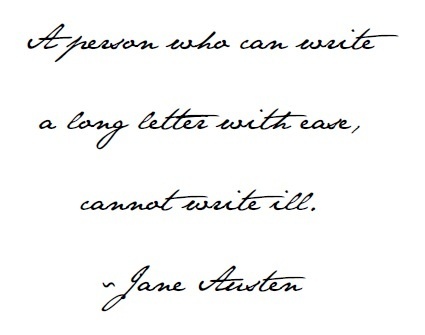 A person who can write
a long letter with ease,
cannot write ill.
~Jane Austen